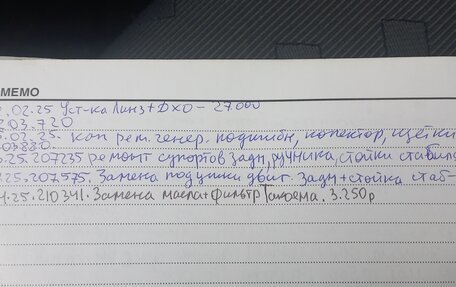 MEMO
.02.25 Уст-ка Линз+ДХО - 27.000
203.720
.02.25. кап рем. генер. подшибн, колектор, щётки
.25.207235 ремонт супортов задн, ручника, стойки стабил
.25.207.575. Замена подушки двиг. задн+стойка стаб-
4.25.210341. Замена масла+фильтр 3.250р